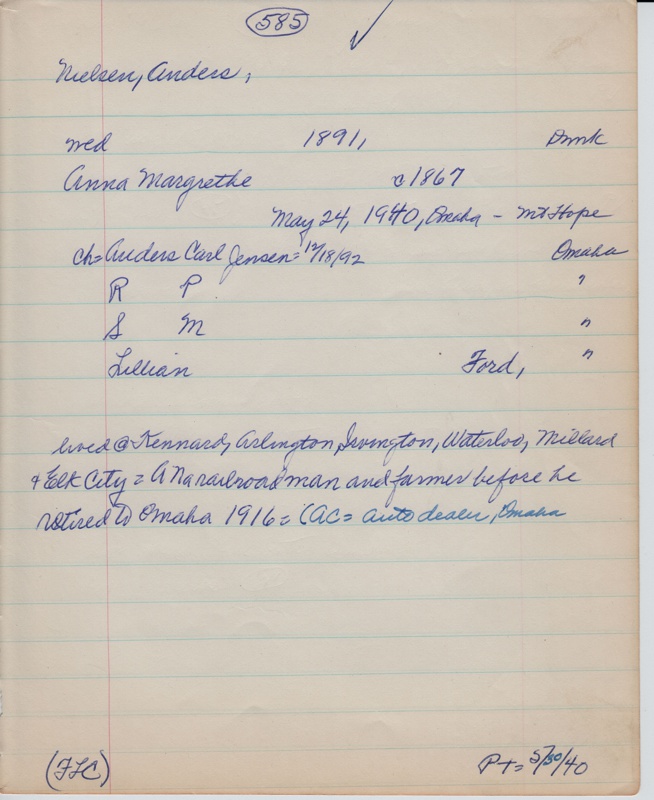 585 ✓
Nielsen, Anders,
wed 1891, Dmk
Anna Margrethe c1867
May 24, 1940, Omaha - Mt Hope
ch= Anders Carl Jensen= 12/18/92 Omaha
R P "
S M "
Lillian Ford, "
lived @ Kennard, Arlington, Irvington, Waterloo, Millard
+ Elk City = A N a railroad man and farmer before he
retired to Omaha 1916 = (AC = auto dealer, Omaha
(FLC) PT= 5/30/40